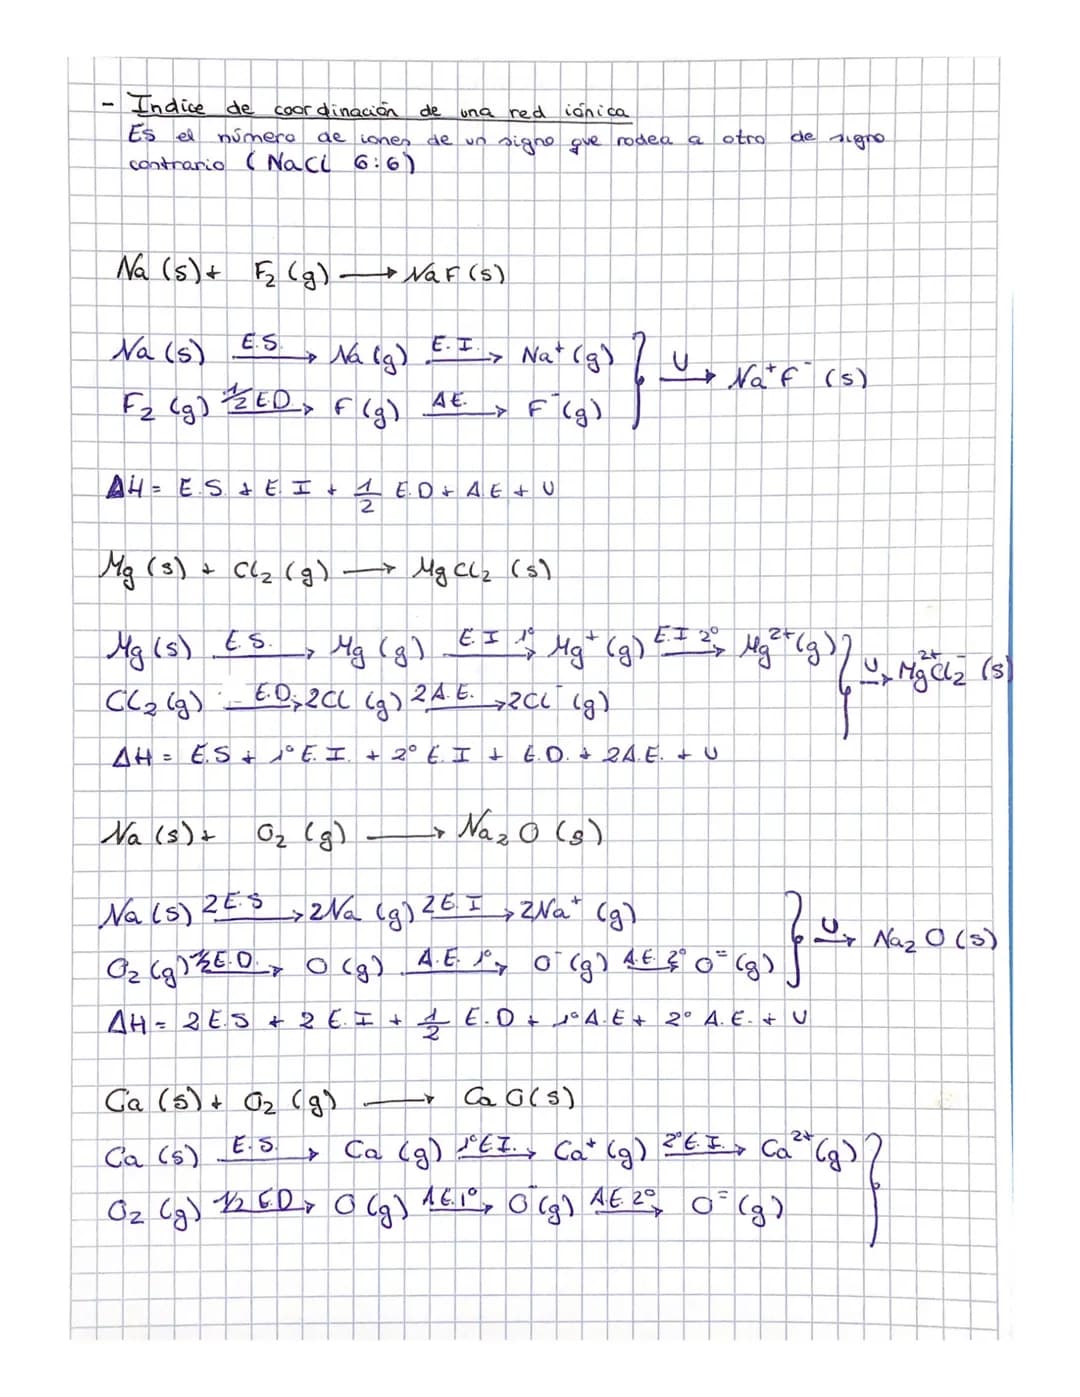 - Indice de coordinación de una red iónica
Es el número de iones de un signo que rodea a otro de signo
contrario (NaCl 6:6)
Na (s) + F₂ (g) ⟶ NaF (s)
Na (s) E.S. → Na (g) E.I. → Na⁺ (g) } U → Na⁺F⁻ (s)
F₂ (g) ½ E.D → F (g) A.E. → F⁻ (g)
ΔH = E.S. + E.I + 1/2 E.D + A.E + U
Mg (s) + Cl₂ (g) ⟶ MgCl₂ (s)
Mg (s) E.S. → Mg (g) E.I 1º → Mg⁺ (g) E.I 2º → Mg²⁺ (g) } U → Mg²⁺Cl₂⁻ (s)
Cl₂ (g) E.D. → 2Cl (g) 2A.E. → 2Cl⁻ (g)
ΔH = E.S + 1º E.I. + 2º E.I + E.D. + 2A.E. + U
Na (s) + O₂ (g) ⟶ Na₂O (s)
Na (s) 2E.S → 2Na (g) 2E.I → 2Na⁺ (g) } U → Na₂O (s)
O₂ (g) ½ E.D. → O (g) A.E. 1º → O⁻ (g) A.E. 2º → O⁼ (g)
ΔH = 2E.S + 2E.I + 1/2 E.D + 1º A.E + 2º A.E. + U
Ca (s) + O₂ (g) ⟶ CaO (s)
Ca (s) E.S. → Ca (g) 1º E.I. → Ca⁺ (g) 2º E.I. → Ca²⁺ (g) }
O₂ (g) 1/2 E.D → O (g) A.E. 1º → O⁻ (g) A.E. 2º → O⁼ (g)